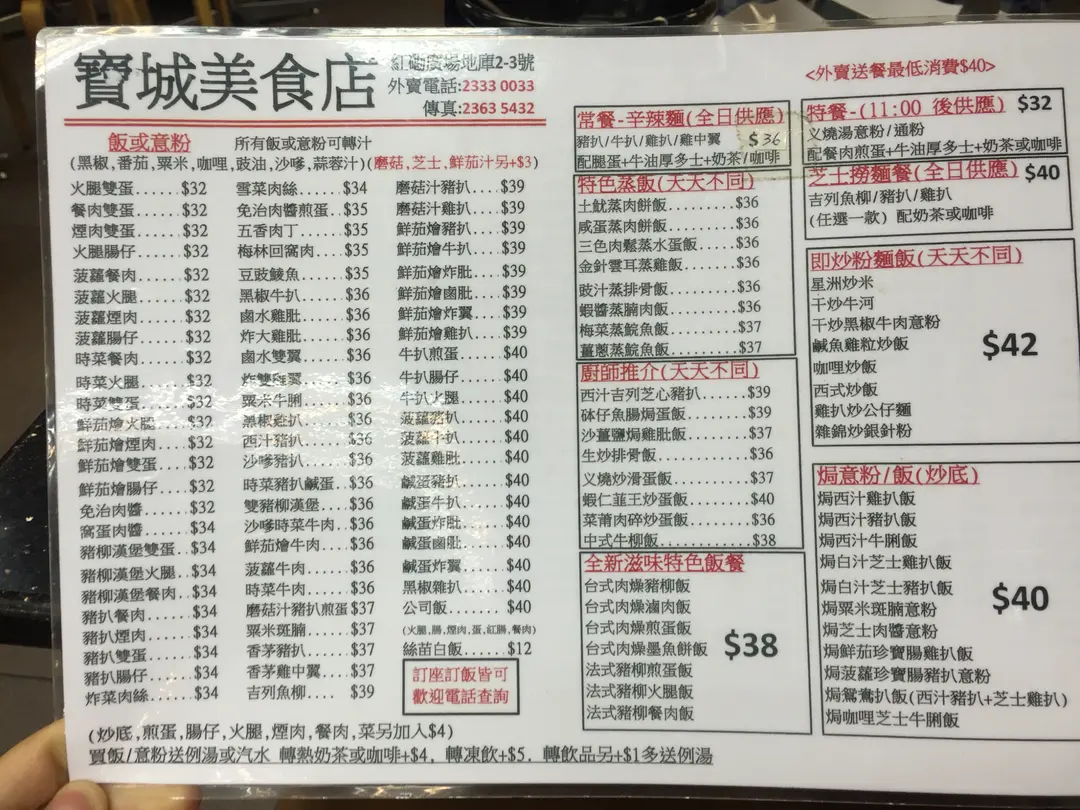 寶城美食店
紅磡廣場地庫2-3號
外賣電話:2333 0033
傳真:2363 5432
飯或意粉 所有飯或意粉可轉汁
(黑椒,番茄,粟米,咖哩,豉油,沙嗲,蒜蓉汁)(磨菇,芝士,鮮茄汁另+$3)
火腿雙蛋......$32
餐肉雙蛋......$32
煙肉雙蛋......$32
火腿腸仔......$32
菠蘿餐肉......$32
菠蘿火腿......$32
菠蘿煙肉......$32
菠蘿腸仔......$32
時菜餐肉......$32
時菜火腿......$32
時菜雙蛋......$32
鮮茄燴火腿...$32
鮮茄燴煙肉...$32
鮮茄燴雙蛋...$32
鮮茄燴腸仔...$32
免治肉醬......$32
窩蛋肉醬......$34
豬柳漢堡雙蛋..$34
豬柳漢堡火腿..$34
豬柳漢堡餐肉..$34
豬扒餐肉......$34
豬扒煙肉......$34
豬扒雙蛋......$34
豬扒腸仔......$34
炸菜肉絲......$34
雪菜肉絲......$34
免治肉醬煎蛋..$35
五香肉丁......$35
梅林回窩肉....$35
豆豉鯪魚......$35
黑椒牛扒......$36
鹵水雞肶......$36
炸大雞肶......$36
鹵水雙翼......$36
炸雙雞翼......$36
粟米牛脷......$36
黑椒雞扒......$36
西汁豬扒......$36
沙嗲豬扒......$36
時菜豬扒鹹蛋..$36
雙豬柳漢堡....$36
沙嗲時菜牛肉..$36
鮮茄燴牛肉....$36
菠蘿牛肉......$36
時菜牛肉......$36
磨菇汁豬扒煎蛋$37
粟米斑腩......$37
香茅豬扒......$37
香茅雞中翼....$37
吉列魚柳....$39
磨菇汁豬扒....$39
磨菇汁雞扒....$39
鮮茄燴豬扒....$39
鮮茄燴牛扒....$39
鮮茄燴炸肶....$39
鮮茄燴鹵肶....$39
鮮茄燴炸翼....$39
鮮茄燴雞扒....$39
牛扒煎蛋......$40
牛扒腸仔......$40
牛扒火腿......$40
菠蘿豬扒......$40
菠蘿牛扒......$40
菠蘿雞肶......$40
鹹蛋豬扒......$40
鹹蛋牛扒......$40
鹹蛋炸肶......$40
鹹蛋鹵肶......$40
鹹蛋炸翼......$40
黑椒雜扒......$40
公司飯........$40
(火腿,腸,煙肉,蛋,紅腸,餐肉)
絲苗白飯......$12
訂座訂飯皆可
歡迎電話查詢
(炒底,煎蛋,腸仔,火腿,煙肉,餐肉,菜另加入$4)
買飯/意粉送例湯或汽水 轉熱奶茶或咖啡+$4, 轉凍飲+$5, 轉飲品另+$1多送例湯
常餐-辛辣麵(全日供應)
豬扒/牛扒/雞扒/雞中翼 $36
配腿蛋+牛油厚多士+奶茶/咖啡
特色蒸飯(天天不同)
土魷蒸肉餅飯.........$36
咸蛋蒸肉餅飯.........$36
三色肉鬆蒸水蛋飯...$36
金針雲耳蒸雞飯......$36
豉汁蒸排骨飯.........$36
蝦醬蒸腩肉飯.........$36
梅菜蒸鯇魚飯.........$37
薑蔥蒸鯇魚飯.........$37
廚師推介(天天不同)
西汁吉列芝心豬扒.....$39
砵仔魚腸焗蛋飯........$39
沙薑鹽焗雞肶飯........$37
生炒排骨飯............$36
义燒炒滑蛋飯..........$37
蝦仁韮王炒蛋飯......$40
菜莆肉碎炒蛋飯......$36
中式牛柳飯............$38
全新滋味特色飯餐
台式肉燥豬柳飯
台式肉燥滷肉飯
台式肉燥煎蛋飯
台式肉燥墨魚餅飯
法式豬柳煎蛋飯
法式豬柳火腿飯
法式豬柳餐肉飯
$38
<外賣送餐最低消費$40>
特餐-(11:00 後供應) $32
义燒湯意粉/通粉
配餐肉煎蛋+牛油厚多士+奶茶或咖啡
芝士撈麵餐(全日供應) $40
吉列魚柳/豬扒/雞扒
(任選一款) 配奶茶或咖啡
即炒粉麵飯(天天不同)
星洲炒米
干炒牛河
干炒黑椒牛肉意粉
鹹魚雞粒炒飯
咖哩炒飯
西式炒飯
雞扒炒公仔麵
雜錦炒銀針粉
$42
焗意粉/飯(炒底)
焗西汁雞扒飯
焗西汁豬扒飯
焗西汁牛脷飯
焗白汁芝士雞扒飯
焗白汁芝士豬扒飯
焗粟米斑腩意粉
焗芝士肉醬意粉
焗鮮茄珍寶腸雞扒飯
焗菠蘿珍寶腸豬扒意粉
焗鴛鴦扒飯(西汁豬扒+芝士雞扒)
焗咖哩芝士牛脷飯
$40